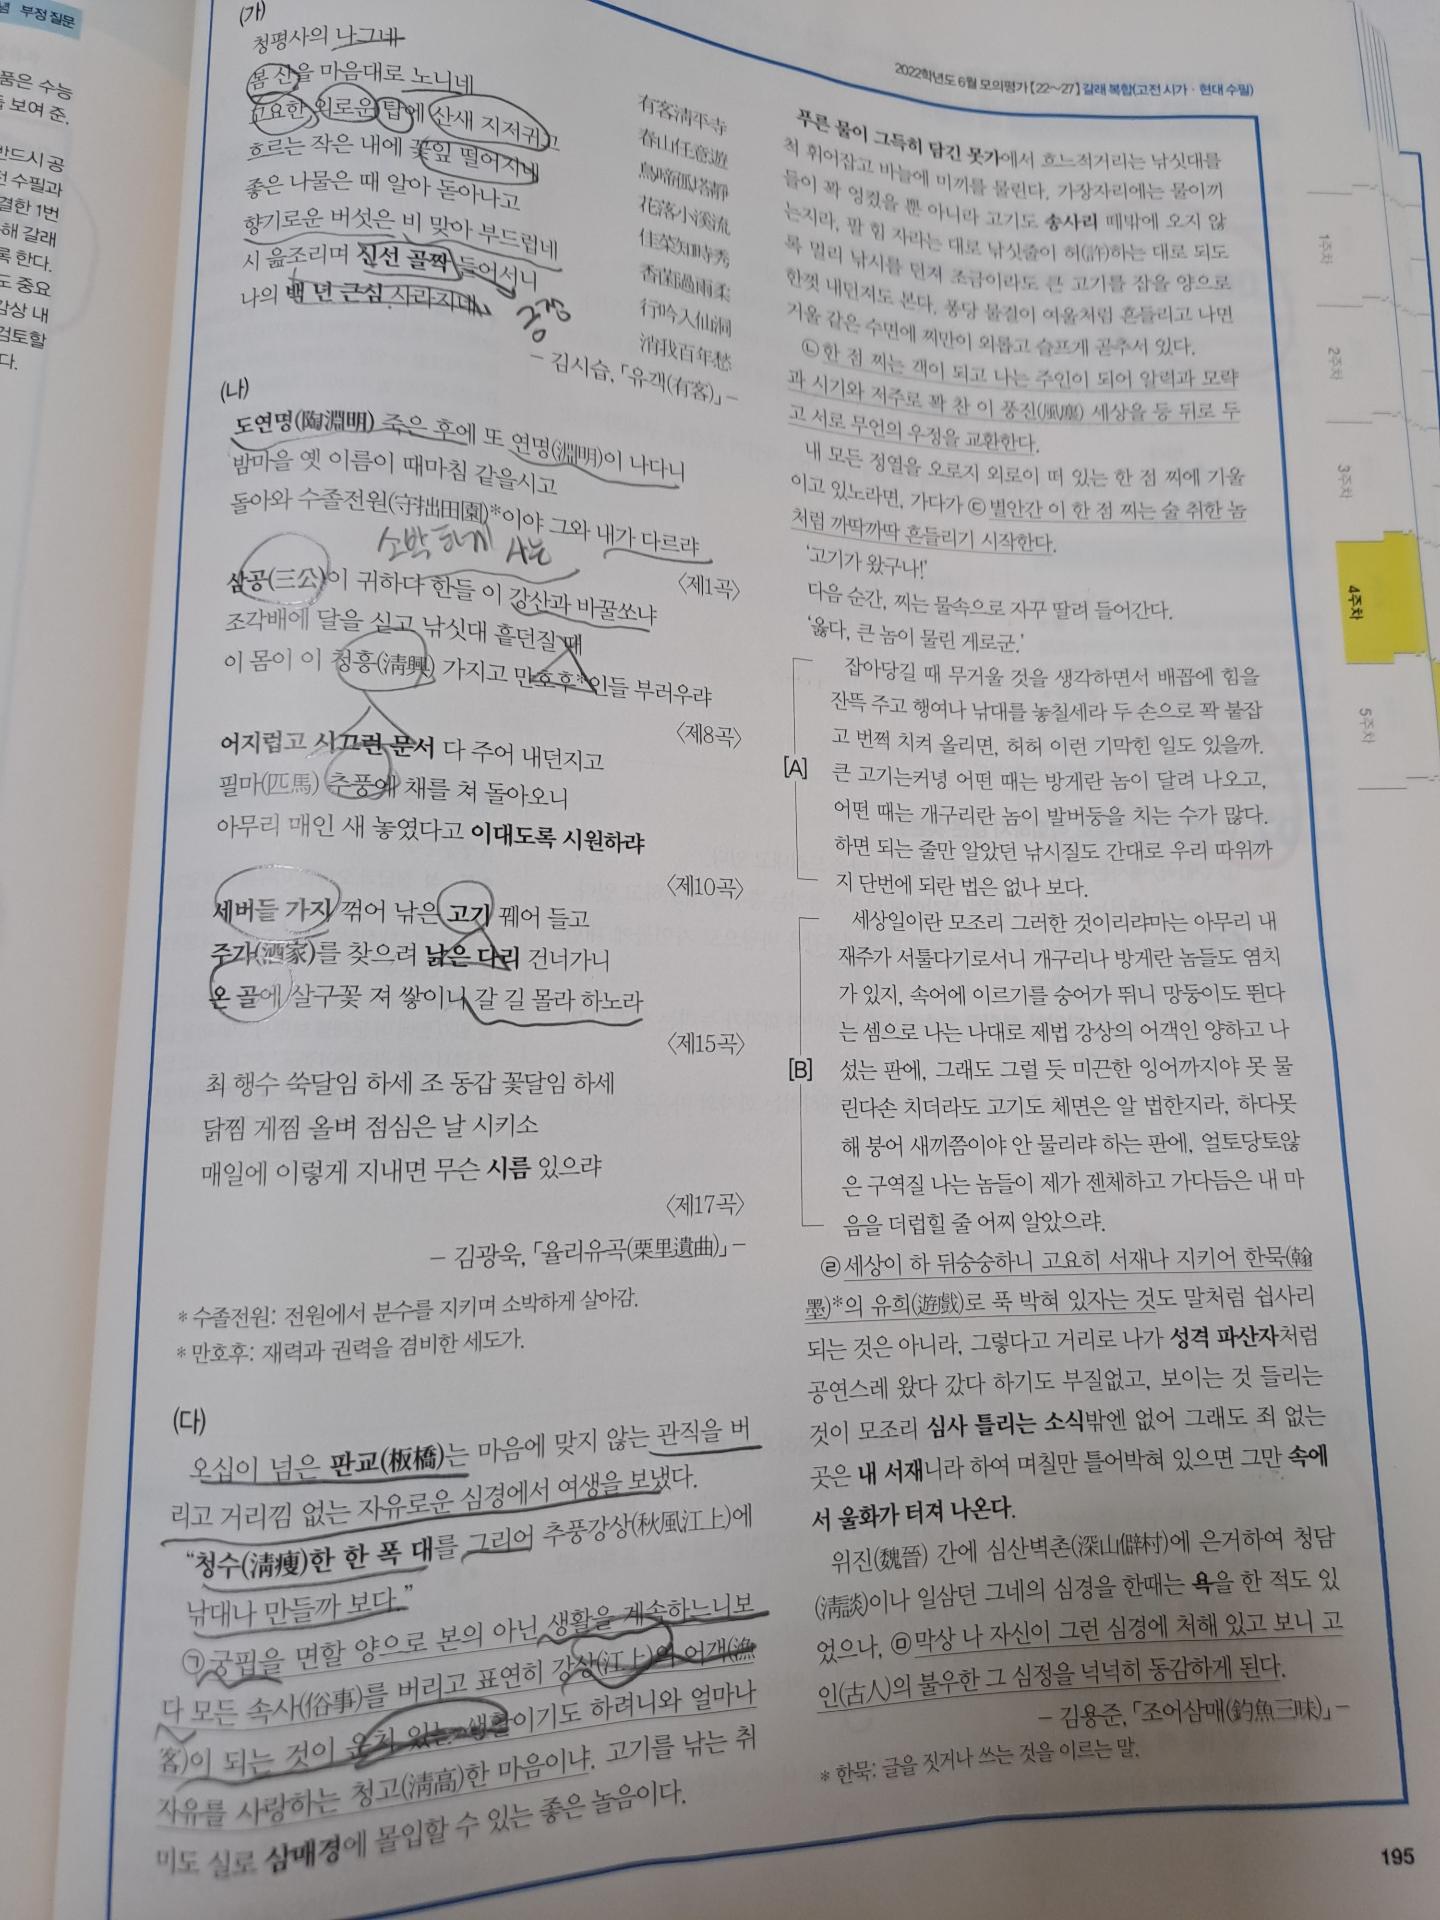 념 부정 질문
품은 수능
보여 준.
반드시 공
전 수필과
결한 1번
해 갈래
록 한다.
도 중요
감상 내
검토할
다.
2022학년도 6월 모의평가 [22~27] 갈래 복합(고전 시가·현대 수필)
(가)
청평사의 나그네
봄 산을 마음대로 노니네
고요한 외로운 탑에 산새 지저귀고
흐르는 작은 내에 꽃잎 떨어지네
좋은 나물은 때 알아 돋아나고
향기로운 버섯은 비 맞아 부드럽네
시 읊조리며 신선 골짝 들어서니
나의 백 년 근심 사라지네
긍정
有客淸平寺
春山任意遊
鳥啼孤塔靜
花落小溪流
佳菜知時秀
香菌過雨柔
行吟入仙洞
消我百年愁
- 김시습, 「유객(有客)」 -
(나)
도연명(陶淵明) 죽은 후에 또 연명(淵明)이 나다니
밤마을 옛 이름이 때마침 같을시고
돌아와 수졸전원(守拙田園)*이야 그와 내가 다르랴
소박하게 사는
〈제1곡〉
삼공(三公)이 귀하다 한들 이 강산과 바꿀쏘냐
조각배에 달을 싣고 낚싯대 흩던질 때
이 몸이 이 청흥(淸興) 가지고 만호후*인들 부러우랴
〈제8곡〉
어지럽고 시끄런 문서 다 주어 내던지고
필마(匹馬) 추풍에 채를 쳐 돌아오니
아무리 매인 새 놓였다고 이대도록 시원하랴
〈제10곡〉
세버들 가지 꺾어 낚은 고기 꿰어 들고
주가(酒家)를 찾으려 낡은 다리 건너가니
온 골에 살구꽃 져 쌓이니 갈 길 몰라 하노라
〈제15곡〉
최 행수 쑥달임 하세 조 동갑 꽃달임 하세
닭찜 게찜 올벼 점심은 날 시키소
매일에 이렇게 지내면 무슨 시름 있으랴
〈제17곡〉
- 김광욱, 「율리유곡(栗里遺曲)」 -
* 수졸전원: 전원에서 분수를 지키며 소박하게 살아감.
* 만호후: 재력과 권력을 겸비한 세도가.
(다)
오십이 넘은 판교(板橋)는 마음에 맞지 않는 관직을 버
리고 거리낌 없는 자유로운 심경에서 여생을 보냈다.
“청수(淸瘦)한 한 폭 대를 그리어 추풍강상(秋風江上)에
낚대나 만들까 보다.”
㉠궁핍을 면할 양으로 본의 아닌 생활을 계속하느니보
다 모든 속사(俗事)를 버리고 표연히 강상(江上)의 어객(漁
客)이 되는 것이 운치 있는 생활이기도 하려니와 얼마나
자유를 사랑하는 청고(淸高)한 마음이냐. 고기를 낚는 취
미도 실로 삼매경에 몰입할 수 있는 좋은 놀음이다.
푸른 물이 그득히 담긴 못가에서 흐느적거리는 낚싯대를
척 휘어잡고 바늘에 미끼를 물린다. 가장자리에는 물이끼
들이 꽉 엉켰을 뿐 아니라 고기도 송사리 떼밖에 오지 않
는지라, 팔 힘 자라는 대로 낚싯줄이 허(許)하는 대로 되도
록 멀리 낚시를 던져 조금이라도 큰 고기를 잡을 양으로
한껏 내던져도 본다. 퐁당 물결이 여울처럼 흔들리고 나면
거울 같은 수면에 찌만이 외롭고 슬프게 곧추서 있다.
㉡한 점 찌는 객이 되고 나는 주인이 되어 알력과 모략
과 시기와 저주로 꽉 찬 이 풍진(風塵) 세상을 등 뒤로 두
고 서로 무언의 우정을 교환한다.
내 모든 정열을 오로지 외로이 떠 있는 한 점 찌에 기울
이고 있노라면, 가다가 ㉢별안간 이 한 점 찌는 술 취한 놈
처럼 까딱까딱 흔들리기 시작한다.
‘고기가 왔구나!’
다음 순간, 찌는 물속으로 자꾸 딸려 들어간다.
‘옳다, 큰 놈이 물린 게로군.’
잡아당길 때 무거울 것을 생각하면서 배꼽에 힘을
잔뜩 주고 행여나 낚대를 놓칠세라 두 손으로 꽉 붙잡
고 번쩍 치켜 올리면, 허허 이런 기막힌 일도 있을까.
[A] 큰 고기는커녕 어떤 때는 방게란 놈이 달려 나오고,
어떤 때는 개구리란 놈이 발버둥을 치는 수가 많다.
하면 되는 줄만 알았던 낚시질도 간대로 우리 따위까
지 단번에 되란 법은 없나 보다.
세상일이란 모조리 그러한 것이리라마는 아무리 내
재주가 서툴다기로서니 개구리나 방게란 놈들도 염치
가 있지, 속어에 이르기를 숭어가 뛰니 망둥이도 뛴다
는 셈으로 나는 나대로 제법 강상의 어객인 양하고 나
[B] 섰는 판에, 그래도 그럴 듯 미끈한 잉어까지야 못 물
린다손 치더라도 고기도 체면은 알 법한지라, 하다못
해 붕어 새끼쯤이야 안 물리랴 하는 판에, 얼토당토않
은 구역질 나는 놈들이 제가 젠체하고 가다듬은 내 마
음을 더럽힐 줄 어찌 알았으랴.
㉣세상이 하 뒤숭숭하니 고요히 서재나 지키어 한묵(翰
墨)*의 유희(遊戲)로 푹 박혀 있자는 것도 말처럼 쉽사리
되는 것은 아니라, 그렇다고 거리로 나가 성격 파산자처럼
공연스레 왔다 갔다 하기도 부질없고, 보이는 것 들리는
것이 모조리 심사 틀리는 소식밖엔 없어 그래도 죄 없는
곳은 내 서재니라 하여 며칠만 틀어박혀 있으면 그만 속에
서 울화가 터져 나온다.
위진(魏晉) 간에 심산벽촌(深山僻村)에 은거하여 청담
(淸談)이나 일삼던 그네의 심경을 한때는 욕을 한 적도 있
었으나, ㉤막상 나 자신이 그런 심경에 처해 있고 보니 고
인(古人)의 불우한 그 심정을 넉넉히 동감하게 된다.
- 김용준, 「조어삼매(釣魚三昧)」 -
* 한묵: 글을 짓거나 쓰는 것을 이르는 말.
1주차
2주차
3주차
4주차
5주차
195